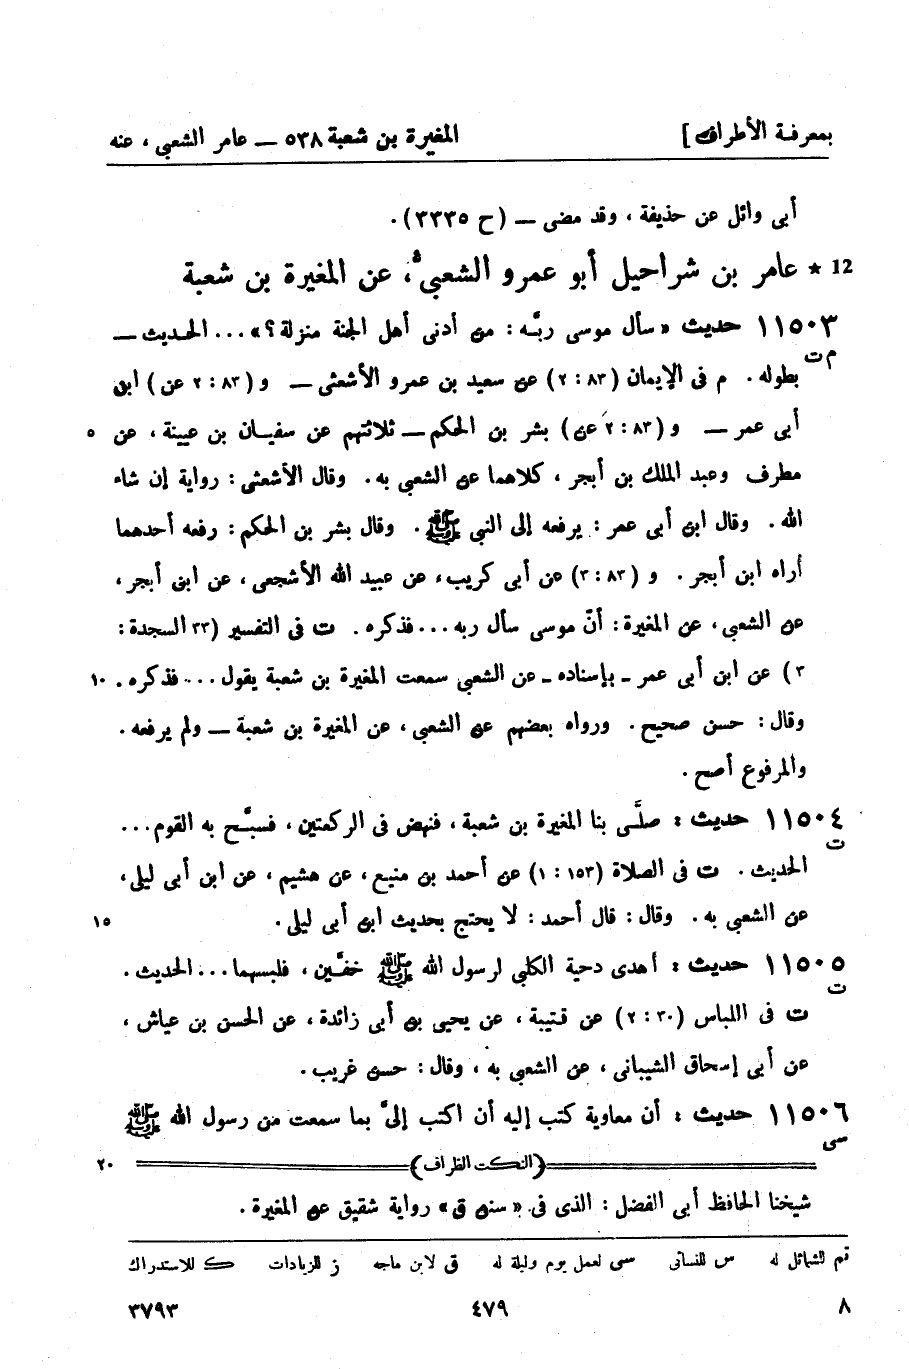 بمعرفة الأطراف] المغيرة بن شعبة ٥٣٨ — عامر الشعبي ، عنه
أبى وائل عن حذيفة ، وقد مضى — (ح ٣٣٣٥).
12 ★ عامر بن شراحيل أبو عمرو الشعبى، عن المغيرة بن شعبة
١١٥٠٣ حديث «سأل موسى ربَّه : من أدنى أهل الجنة منزلة؟» ... الحديث —
م ت
بطوله . م فى الإيمان (٨٣ : ٢) عن سعيد بن عمرو الأشعثى — و (٨٣ : ٢ عن) ابن
أبى عمر — و (٨٣ : ٢ عن) بشر بن الحكم — ثلاثتهم عن سفيان بن عيينة ، عن ٥
مطرف وعبد الملك بن أبجر ، كلاهما عن الشعبى به . وقال الأشعثى : رواية إن شاء
الله . وقال ابن أبى عمر : يرفعه إلى النبي ﷺ . وقال بشر بن الحكم : رفعه أحدهما
أراه ابن أبجر . و (٨٣ : ٣) عن أبى كريب، عن عبيد الله الأشجعى ، عن ابن أبجر ،
عن الشعبى ، عن المغيرة : أنّ موسى سأل ربه ... فذكره . ت فى التفسير (٣٣ السجدة :
٣) عن ابن أبى عمر ـ بإسناده ـ عن الشعبى سمعت المغيرة بن شعبة يقول ... فذكره . ١٠
وقال : حسن صحيح . ورواه بعضهم عن الشعبى ، عن المغيرة بن شعبة — ولم يرفعه .
والمرفوع أصح .
١١٥٠٤ حديث : صلَّى بنا المغيرة بن شعبة ، فنهض فى الركعتين ، فسبَّح به القوم ...
ت
الحديث . ت فى الصلاة (١٥٣ : ١) عن أحمد بن منيع ، عن هشيم ، عن ابن أبى ليلى ،
عن الشعبى به . وقال : قال أحمد : لا يحتج بحديث ابن أبى ليلى . ١٥
١١٥٠٥ حديث : أهدى دحية الكلبى لرسول الله ﷺ خفَّين ، فلبسهما ... الحديث .
ت
ت فى اللباس (٣٠ : ٢) عن قتيبة ، عن يحيى بن أبى زائدة ، عن الحسن بن عياش ،
عن أبى إسحاق الشيبانى ، عن الشعبى به ، وقال : حسن غريب .
١١٥٠٦ حديث : أن معاوية كتب إليه أن اكتب إلىَّ بما سمعت من رسول الله ﷺ
سى
(النكت الظراف) ٢٠
شيخنا الحافظ أبى الفضل : الذى فى «سنن ق» رواية شقيق عن المغيرة .
تم للشمائل له س للنسائى سى لعمل يوم وليلة له ق لابن ماجه ز للزيادات ك للاستدراك
٨ ٤٧٩ ٣٧٩٣